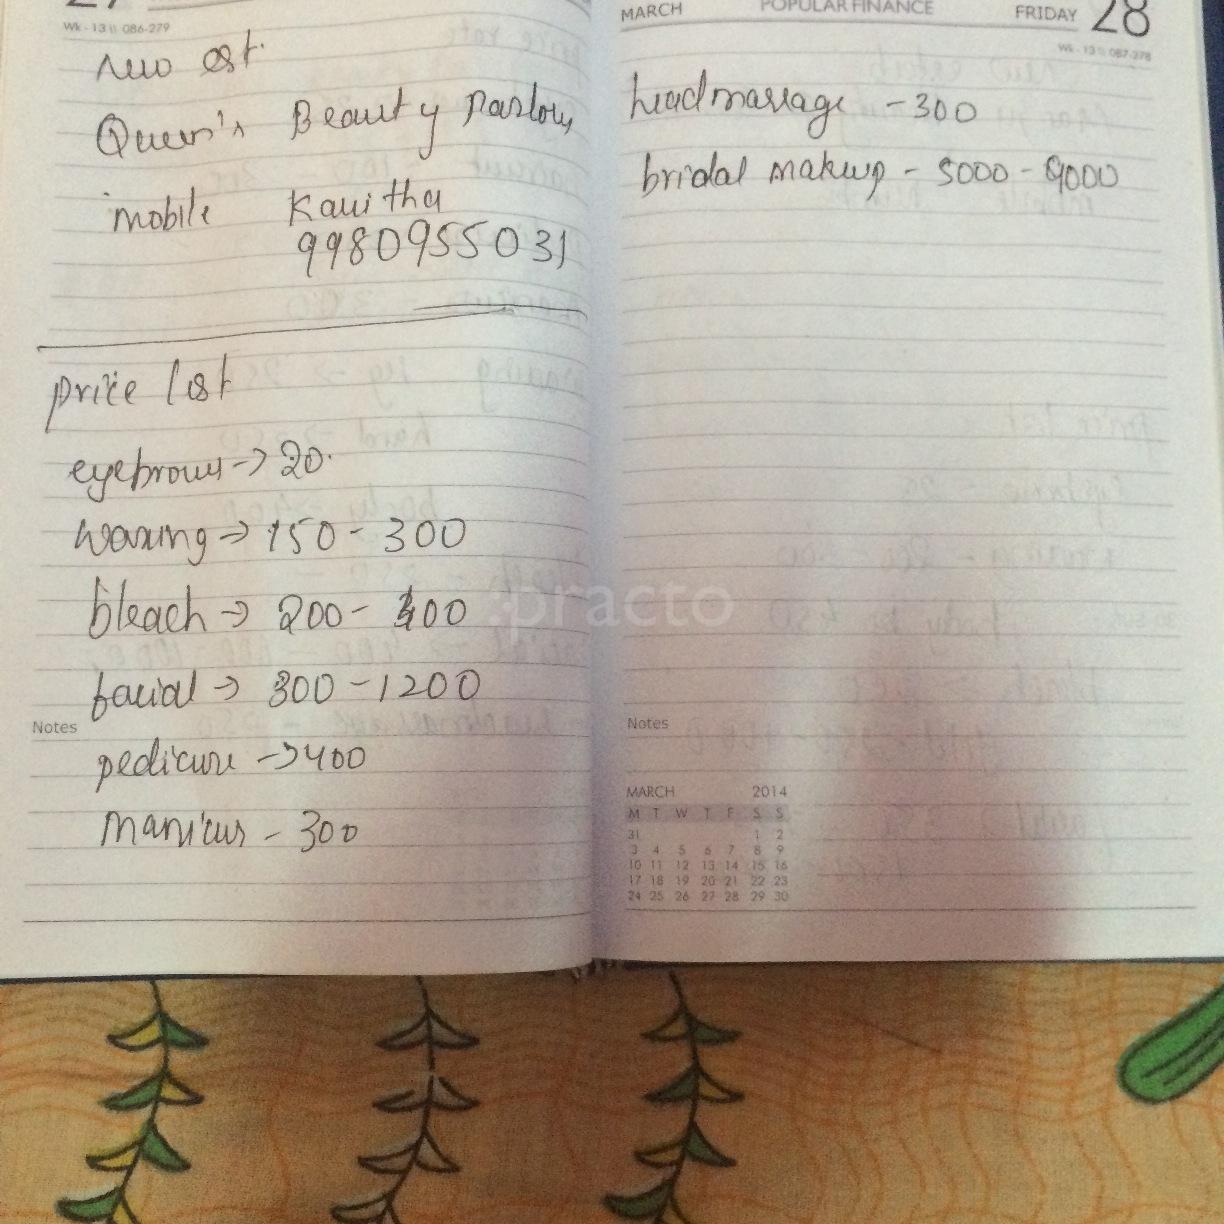 Wk - 13 \\ 086-279
new est.
Queen's Beauty Parlour
mobile Kavitha
9980955031
price list
eyebrows → 20.
waxing → 150 - 300
bleach → 200 - 400
facial → 300 - 1200
Notes
pedicure → 400
manicur - 300
MARCH POPULAR FINANCE FRIDAY 28
Wk - 13 \\ 087-278
headmassage - 300
bridal makup - 5000 - 9000
:practo
Notes
MARCH 2014
M T W T F S S
31 1 2
3 4 5 6 7 8 9
10 11 12 13 14 15 16
17 18 19 20 21 22 23
24 25 26 27 28 29 30